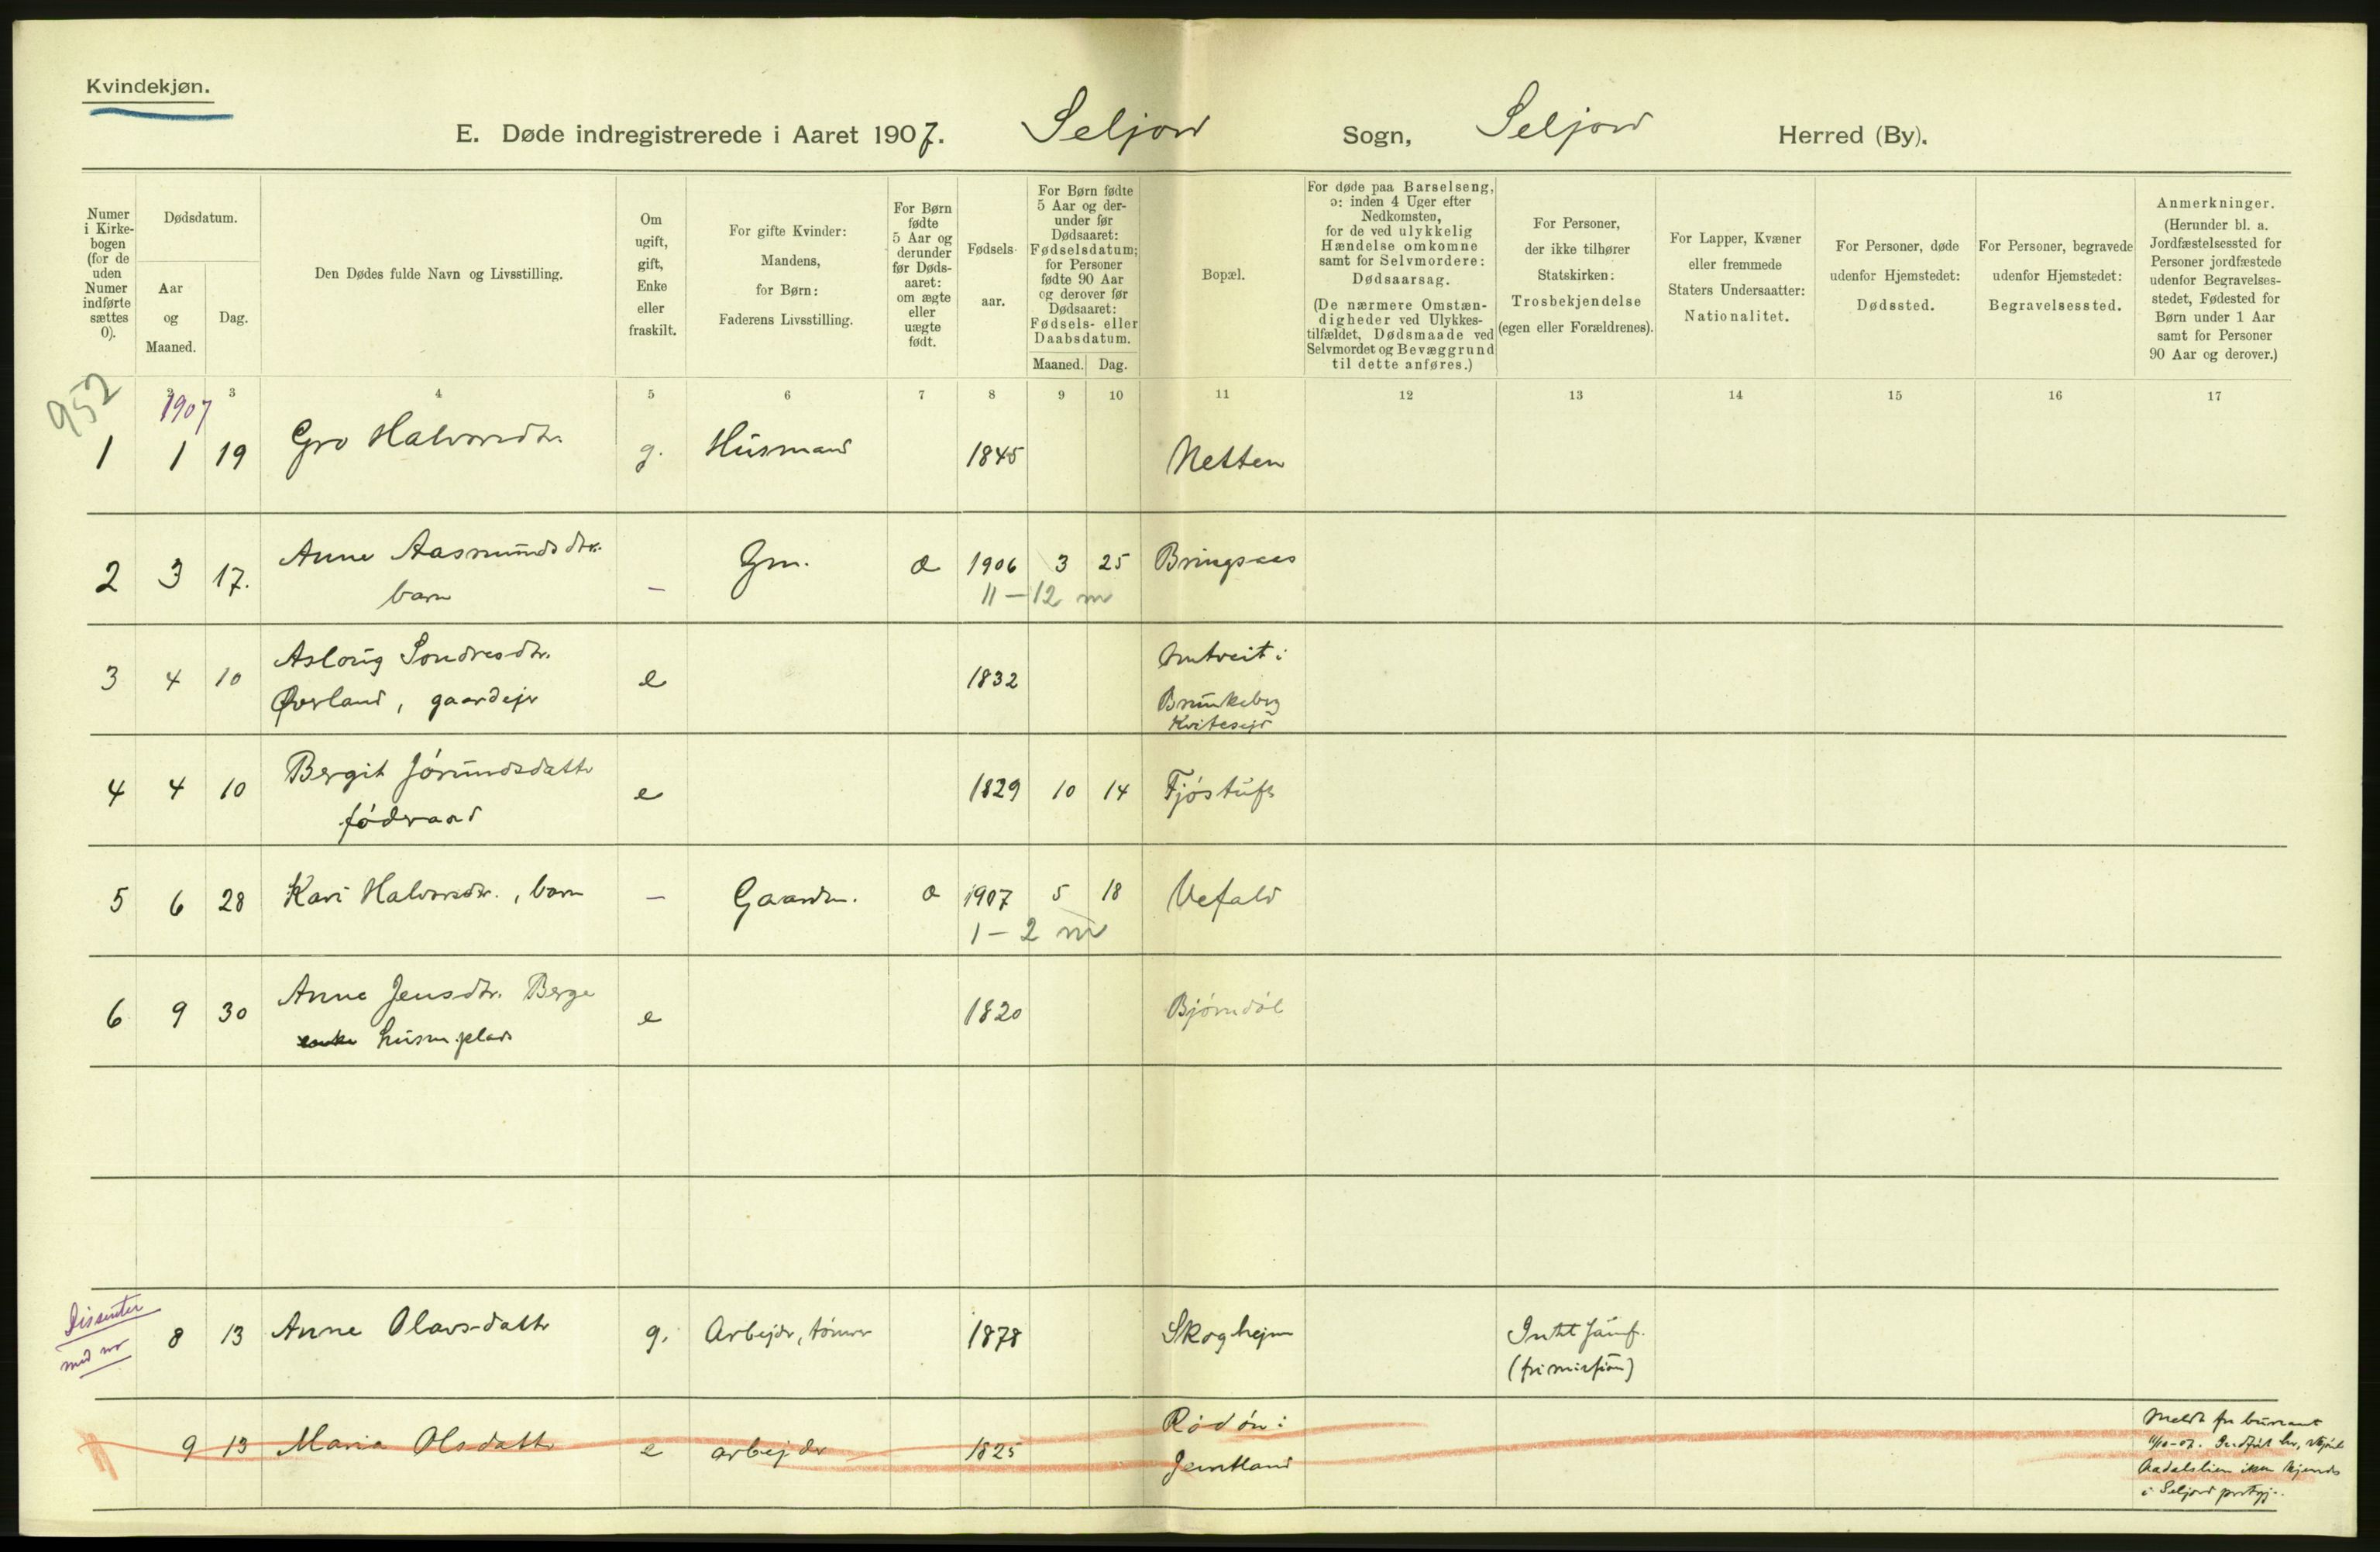 Kvindekjøn.
E. Døde indregistrerede i Aaret 1907. Seljord Sogn, Seljord Herred (By).
Numer i Kirkebogen (for de uden Numer indførte sættes 0).
Dødsdatum.
Aar og Maaned.
Dag.
Den Dødes fulde Navn og Livsstilling.
Om ugift, gift, Enke eller fraskilt.
For gifte Kvinder: Mandens, for Børn: Faderens Livsstilling.
For Børn fødte 5 Aar og derunder før Dødsaaret: om ægte eller uægte født.
Fødselsaar.
For Børn fødte 5 Aar og derunder før Dødsaaret: Fødselsdatum; for Personer fødte 90 Aar og derover før Dødsaaret: Fødsels- eller Daabsdatum.
Maaned. Dag.
Bopæl.
For døde paa Barselseng, ɔ: inden 4 Uger efter Nedkomsten, for de ved ulykkelig Hændelse omkomne samt for Selvmordere: Dødsaarsag.
(De nærmere Omstændigheder ved Ulykkestilfældet, Dødsmaade ved Selvmordet og Bevæggrund til dette anføres.)
For Personer, der ikke tilhører Statskirken: Trosbekjendelse (egen eller Forældrenes).
For Lapper, Kvæner eller fremmede Staters Undersaatter: Nationalitet.
For Personer, døde udenfor Hjemstedet: Dødssted.
For Personer, begravede udenfor Hjemstedet: Begravelsessted.
Anmerkninger.
(Herunder bl. a. Jordfæstelsessted for Personer jordfæstede udenfor Begravelsesstedet, Fødested for Børn under 1 Aar samt for Personer 90 Aar og derover.)
952
1907 3 4 5 6 7 8 9 10 11 12 13 14 15 16 17
1 1 19 Gro Halvorsdtr. g. Husmand 1845 Netten
2 3 17. Anne Aasmundsdtr. barn — Gm. æ 1906 3 25 Bringsaas
11 – 12 m
3 4 10 Aslaug Sondresdtr. e 1832
Øverland, gaardejr
Brunkeberg
Kvitesejd
4 4 10 Bergit Jørundsdattr e 1829 10 14 Fjøstuft
fødraad
5 6 28 Kari Halvorsdtr., barn — Gaardm. æ 1907 5 18 Vefald
1 – 2 m
6 9 30 Anne Jensdtr. Berge e 1820 Bjørndøl
enke husm.plads
Dissenter
med no
8 13 Anne Olavsdattr g. Arbejdr, tømmr 1878 Skoghejm
(frimission)
9 13 Maria Olsdattr e arbejdr 1825 Rödön i
Jemtland
Meldt fra
11/10-07.
ikke kjendt
i Seljord prstgj.